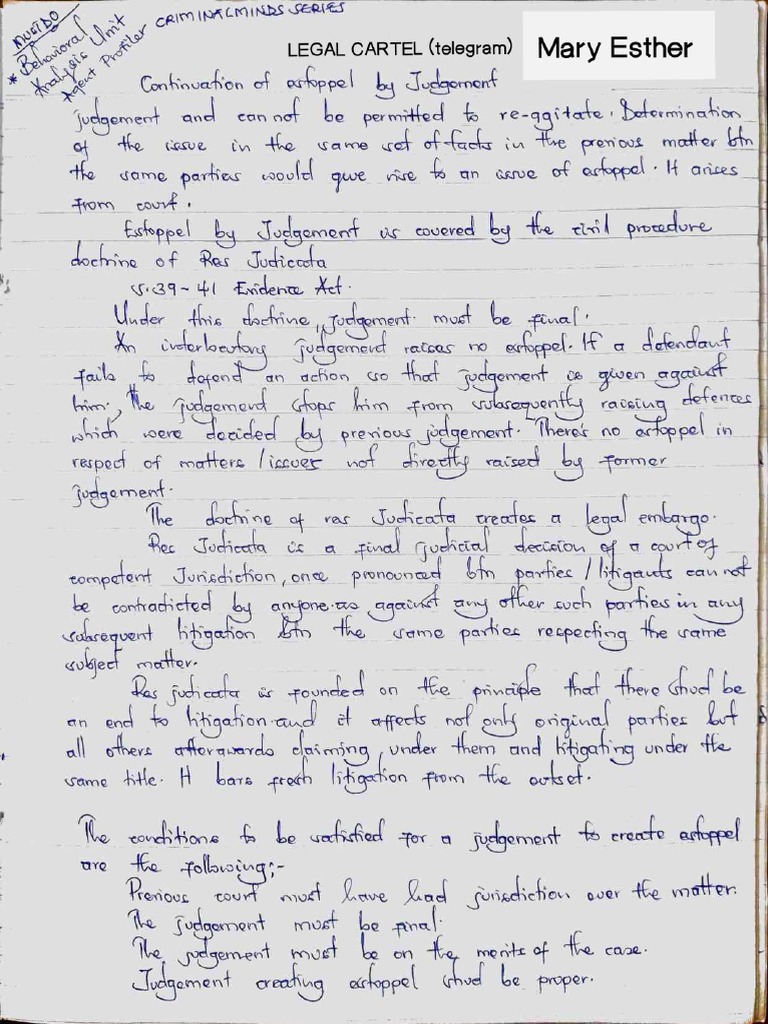 MUST DO
* Behavioral
Analysis Unit
Agent Profiler
CRIMINAL MINDS SERIES
LEGAL CARTEL (telegram)
Mary Esther
Continuation of estoppel by Judgement
judgement and can not be permitted to re-aggitate. Determination
of the issue in the same set of facts in the previous matter btn
the same parties would give rise to an issue of estoppel. It arises
from court.
Estoppel by Judgement is covered by the civil procedure
doctrine of Res Judicata
s.39-41 Evidence Act.
Under this doctrine, judgement must be final.
An interlocutory judgement raises no estoppel. If a defendant
fails to defend an action so that judgement is given against
him, the judgement stops him from subsequently raising defences
which were decided by previous judgement. There's no estoppel in
respect of matters/issues not directly raised by former
judgement.
The doctrine of res Judicata creates a legal embargo.
Res Judicata is a final judicial decision of a court of
competent Jurisdiction, once pronounced btn parties/litigants can not
be contradicted by anyone as against any other such parties in any
subsequent litigation btn the same parties respecting the same
subject matter.
Res judicata is founded on the principle that there shud be
an end to litigation and it affects not only original parties but
all others afterwards claiming under them and litigating under the
same title. It bars fresh litigation from the outset.
The conditions to be satisfied for a judgement to create estoppel
are the following;-
Previous court must have had jurisdiction over the matter.
The judgement must be final.
The judgement must be on the merits of the case.
Judgement creating estoppel shud be proper.